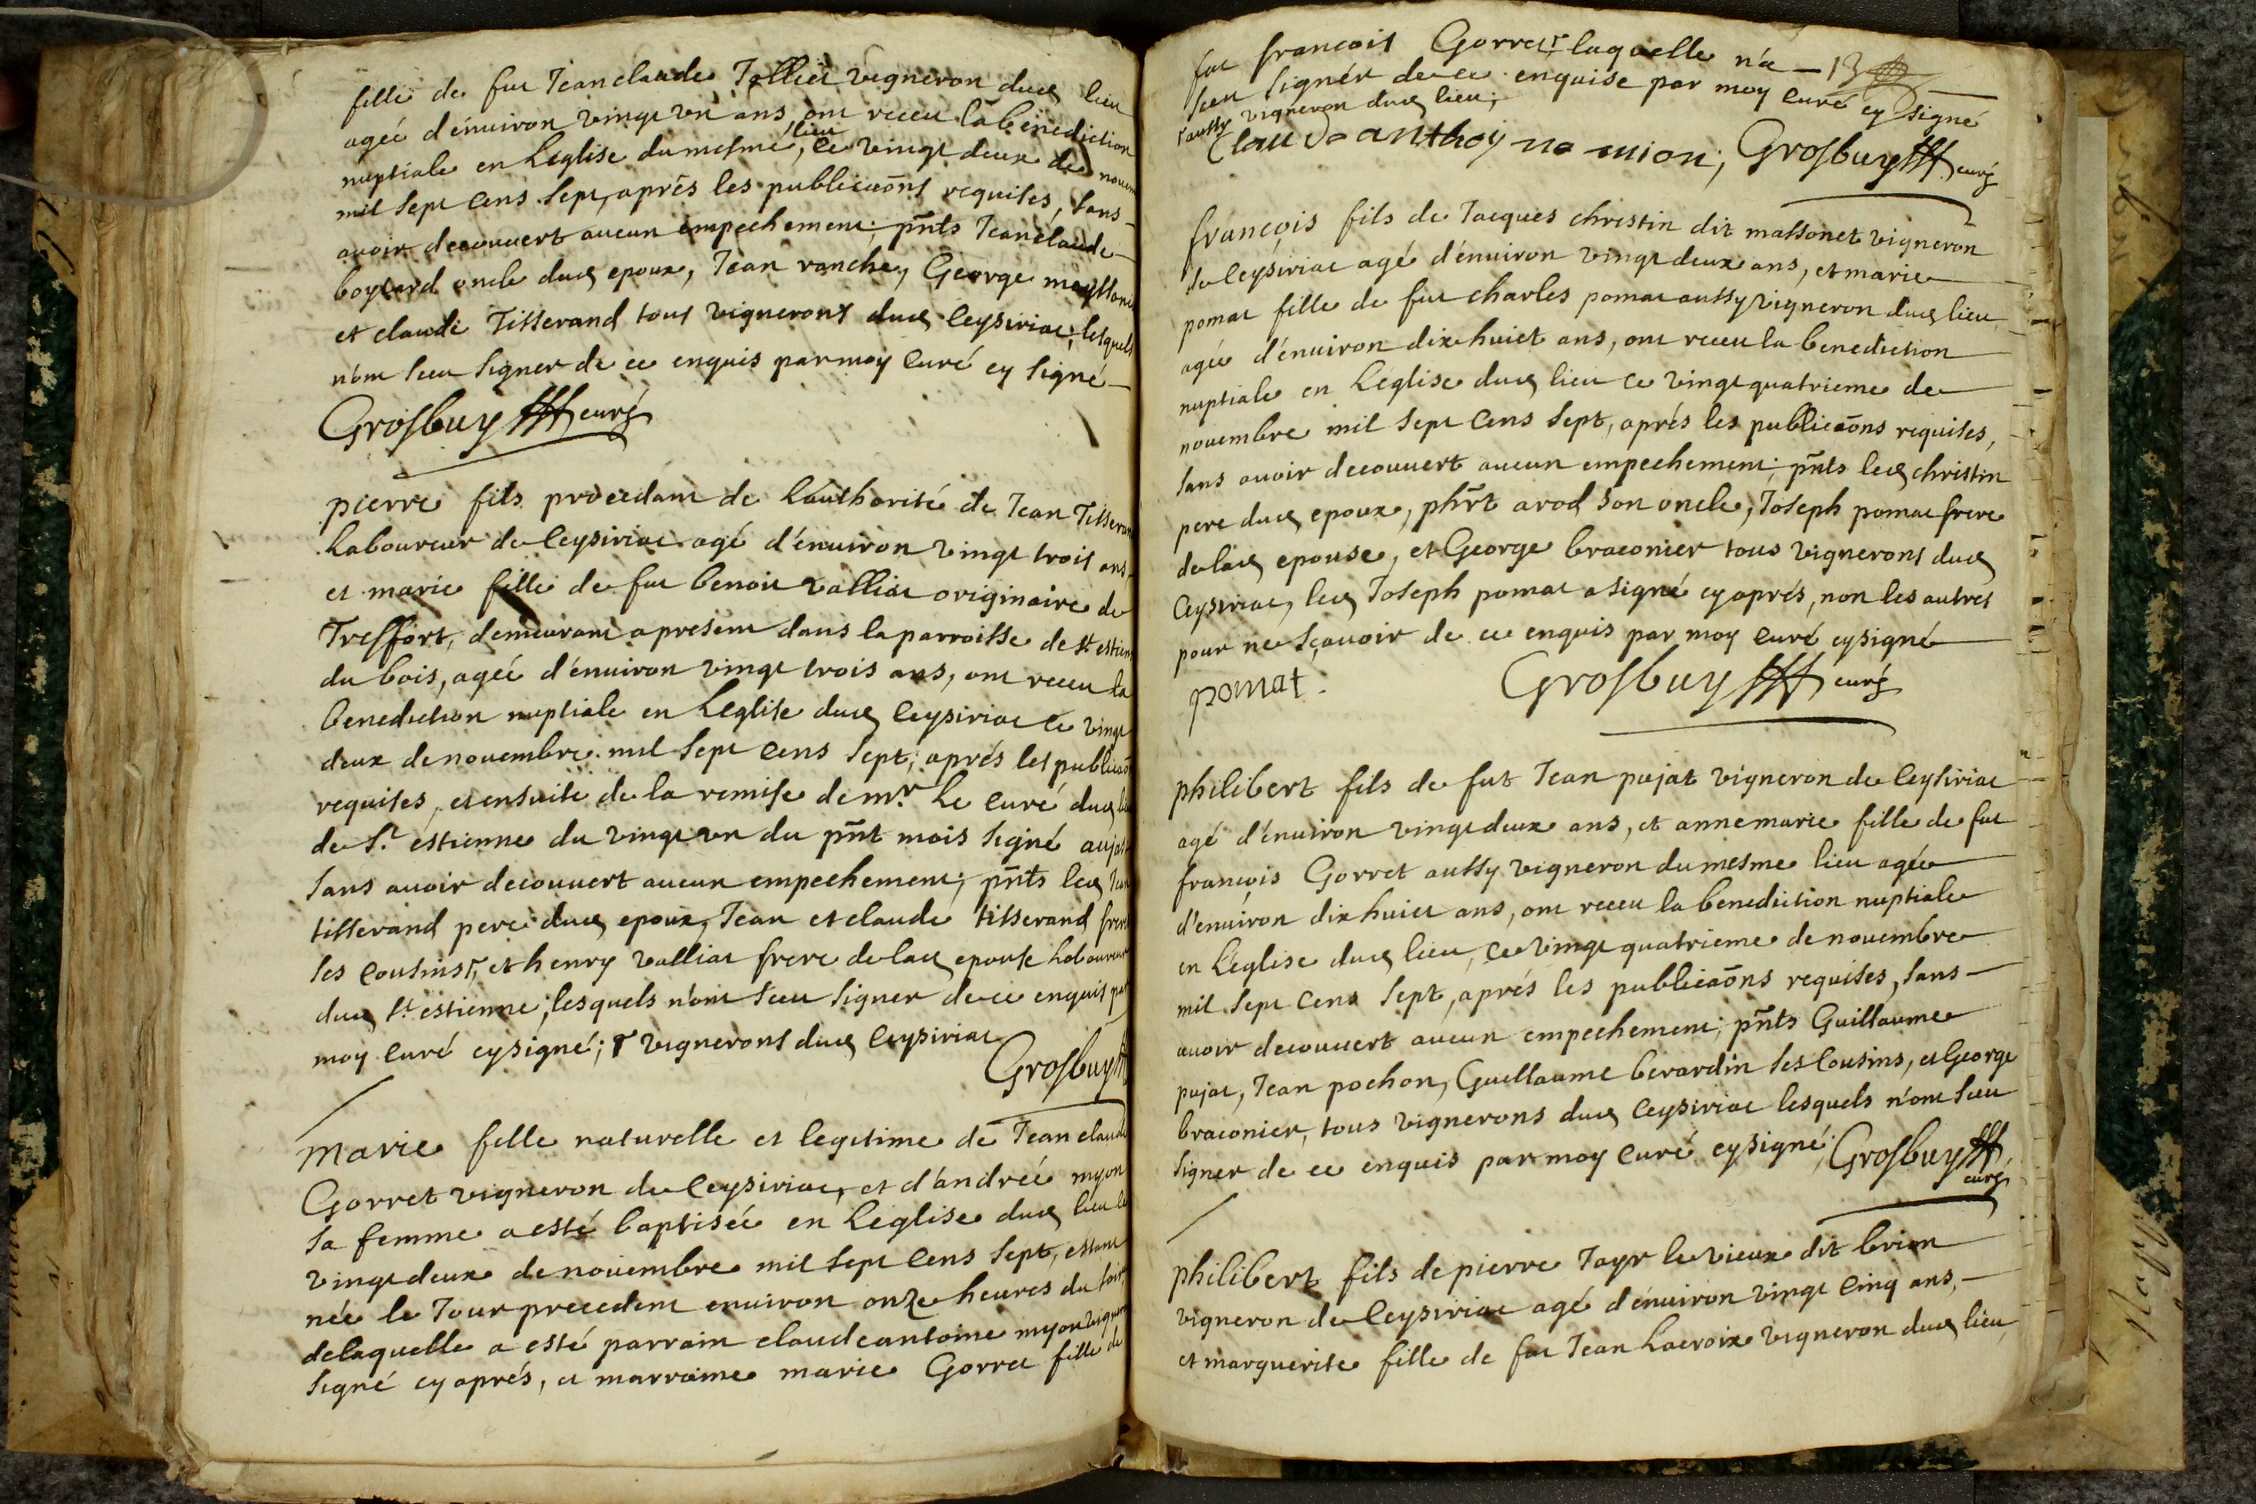 fille de fut Jeanclaude Tolliet vigneron dud lieu
agée d'énuiron vingt un ans, ont receu la benediction
nuptiale en L'eglise du mesme lieu, ce vingt deux de nouem
mil sept cens sept, aprés les publicãons requises, sans
auoir decouuert aucun empechement; pñts Jeanclaude
boyvard oncle dud epoux, Jean ranche, George
et claude Tisserand tous vignerons dud Ceysiriat, lesquels
n'ont sceu signer de ce enquis par moy Curé cy signé
Grosbuy curé
pierre fils procedant de L'authorité de Jean Tisseran
Laboureur de Ceysiriat agé d'énuiron vingt trois ans
et marie fille de fut benoit valliat originaire de
Treffort, demeurant a present dans la parroisse de st estien
du bois, agée d'énuiron vingt trois ans, ont receu la
benediction nuptiale en L'eglise dud Ceysiriat ce vingt
deux de nouembre mil sept cens sept; aprés les publicaõ
requises, et ensuite de la remise de mr. Le Curé dud
de St. estienne du vingt un du pñt mois signé
sans auoir decouuert aucun empechement; pñts led
tisserand pere dud epoux, Jean et claude tisserand
ses cousins┌, et henry valliat frere de lad epouse Laboureur
dud st. estienne, lesquels n'ont sceu signer de ce enquis par
moy Curé cy signé; ┌ vignerons dud Ceysiriat
Grosbuy
Marie fille naturelle et legitime de Jean claude
Gorret vigneron de Ceysiriat, et d'andrée myon
sa femme a esté baptisée en L'eglise dud lieu le
vingt deux de nouembre mil sept cens sept, estant
née le Jour precedent enuiron onze heures du soir,
delaquelle a esté parrain claudeantoine myon
signé cy aprés, et marraine marie Gorret fille de
fut francois Gorret┌, laquelle n'a — 13
sceu signér de ce enquise par moy Curé cy signé
┌ aussy vigneron dud lieu;
Claude anthoyne mion; Grosbuy curé
françois fils de Jacques christin dit massonet vigneron
de Ceysiriat agé d'énuiron vingt deux ans, et marie
pomat fille de fut charles pomat aussy vigneron dud lieu
agée d'énuiron dix huict ans, ont receu la benediction
nuptiale en L'eglise dud lieu ce vingt quatrieme de
nouembre mil sept cens sept, aprés les publicãons requises,
sans auoir decouuert aucun empechement; pñts led christin
pere dud epoux, phr̃t arod son oncle, Joseph pomat frere
delad epouse, et George braconier tous vignerons dud
Ceysiriat, led Joseph pomat a signé cy aprés, non les autres
pour ne sçauoir de ce enquis par moy Curé cy signé
pomat. Grosbuy curé
philibert fils de fut Jean pujat vigneron de Ceysiriat
agé d'énuiron vingt deux ans, et annemarie fille de fut
françois Gorret aussy vigneron du mesme lieu agée
d'enuiron dix huict ans, ont receu la benediction nuptiale
en L'église dud lieu, ce vingt quatrieme de nouembre
mil sept cens sept, aprés les publicaõns requises, sans
auoir decouuert aucun empechement; pñts Guillaume
pujat, Jean pochon, Guillaume berardin ses Cousins, et George
braconier, tous vignerons dud Ceysiriat lesquels n'ont sceu
signer de ce enquis par moy Curé cy signé; Grosbuy
curé
philibert fils de pierre Tayr le vieux dit brion
vigneron de Ceysiriat agé d'énuiron vingt Cinq ans,
et marguerite fille de fut Jean Lacroix vigneron dud lieu